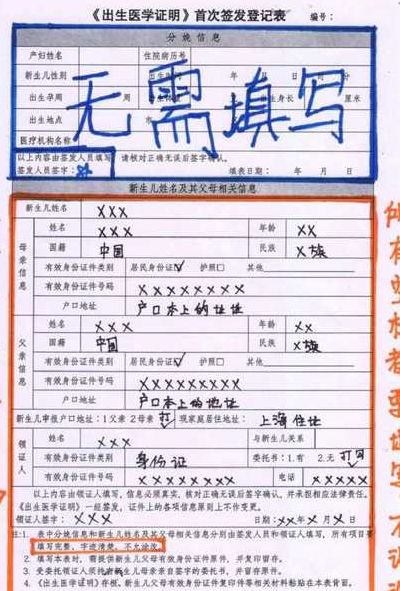 《出生医学证明》首次签发登记表 编号：
分娩信息
产妇姓名 住院病历号
新生儿性别 出生时间 年 月 日 时 分
出生孕周 周 出生身长 厘米
出生地点 市
医疗机构名称
无需填写
以上内容由签发人员填写，请核对正确无误后签字确认。
签发人员签字： 填表日期： 年 月 日
新生儿姓名及其父母相关信息
新生儿姓名 XXX
母亲信息
姓名 XXX 年龄 XX
国籍 中国 民族 X族
有效身份证件类别 居民身份证☑ 护照□ 其他
有效身份证件号码 XXXXXXXXX
户口地址 户口本上的地址
父亲信息
姓名 XXX 年龄 XX
国籍 中国 民族 X族
有效身份证件类别 居民身份证☑ 护照□ 其他
有效身份证件号码 XXXXXXXXX
户口地址 户口本上的地址
新生儿申报户口地址：1父亲 2母亲 打√ 现家庭居住地址： 上海住址
领证人
姓名 XXX 与新生儿关系
有效身份证件类别 身份证 委托书：1.有 2.无 打√
有效身份证件号码 XXXXXXXXX 电话 XXXXX
以上内容由领证人填写，信息必须真实，核对正确无误后签字确认，并承担相应法律责任。
《出生医学证明》一经签发，证件上的各项信息原则上不作变更。
领证人签字： XXX 日期：XX年X月XX日
注:1. 表中分娩信息和新生儿姓名及其父母相关信息分别由签发人员和领证人填写，所有项目要
填写完整，字迹清楚，不允涂改。
2. 填本表时，需提供新生儿父母有效身份证件原件，并复印留存。
3. 受委托领证人员托新生儿母亲亲自签字的委托书，并留存原件。
4. 《出生医学证明》存根、新生儿父母有效身份证件复印件等相关材料粘贴在本表背面。
所有空格都要填写，不误